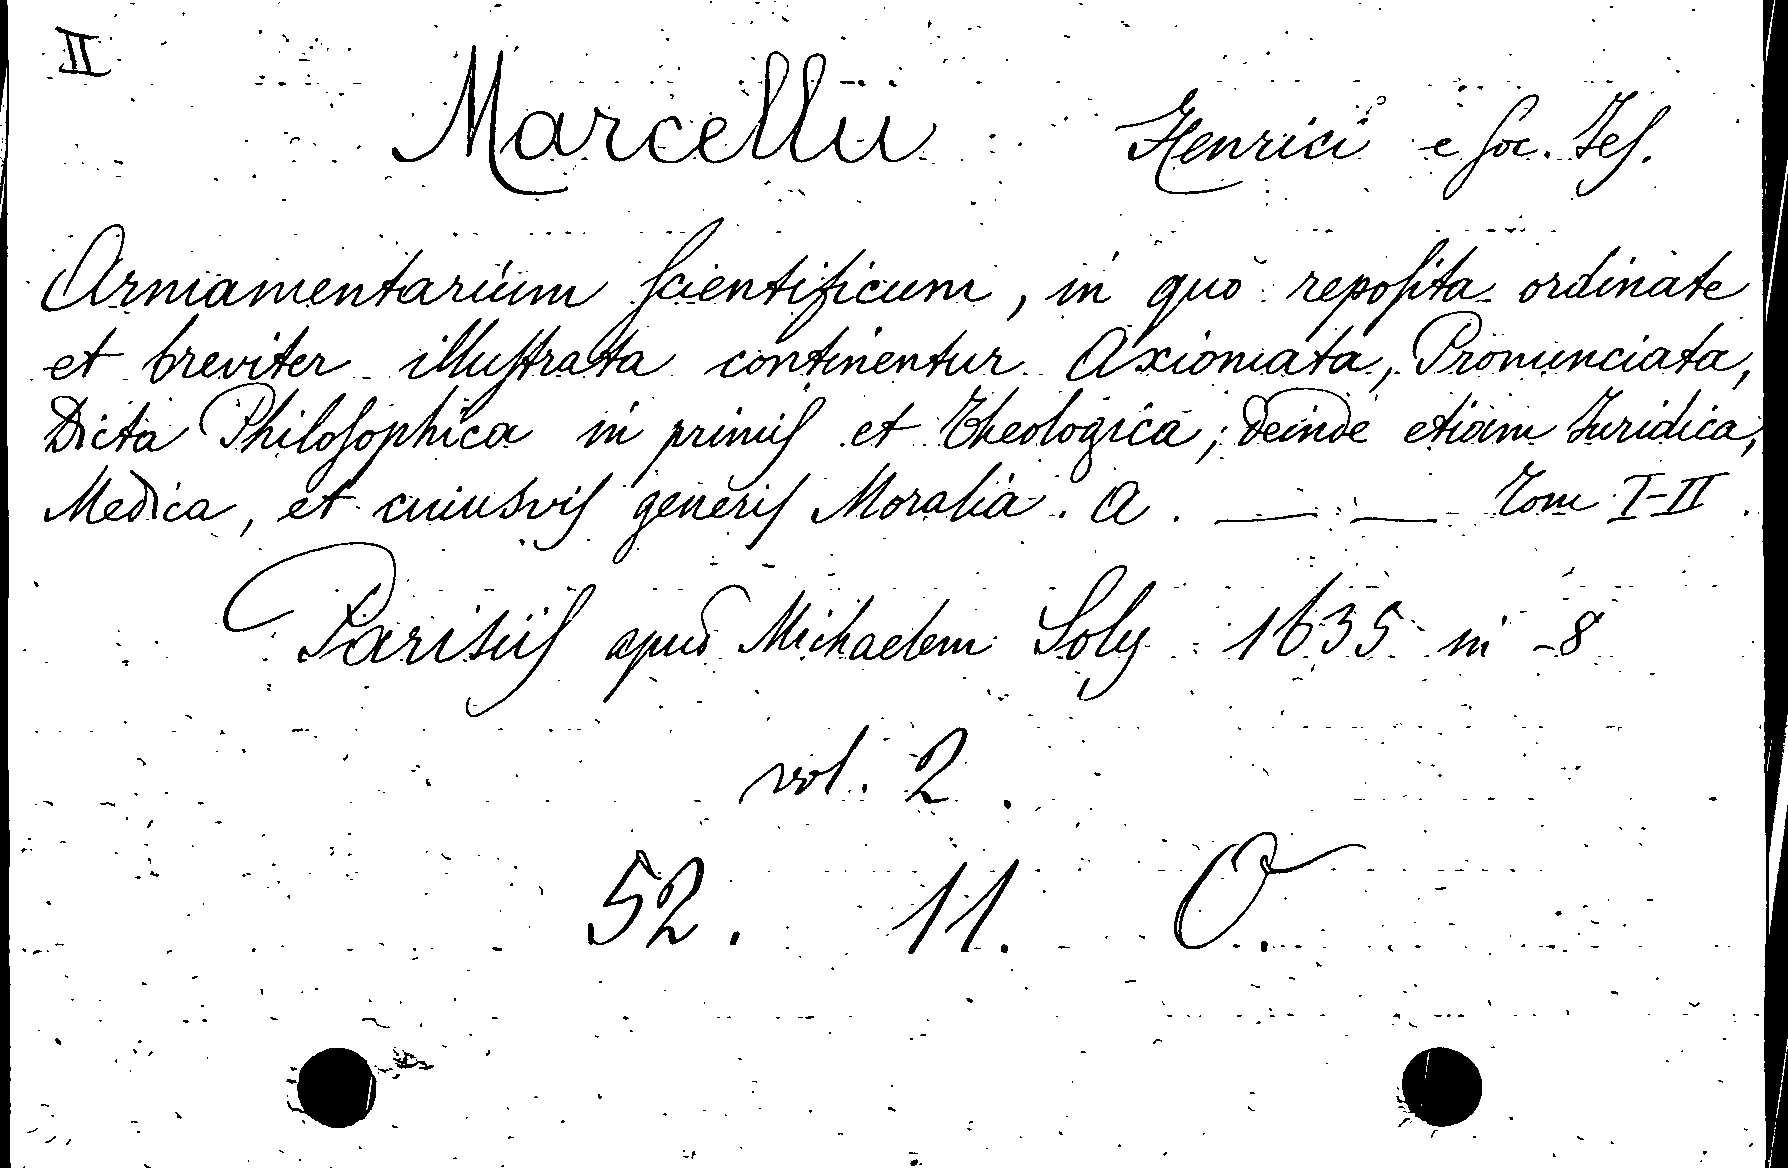 II
Marcellii Henrici e Soc. Jes.
Armamentarium scientificum, in quo reposita ordinate
et breviter illustrata continentur Axiomata, Pronunciata,
Dicta Philosophica in primis et Theologica; deinde etiam Juridica,
Medica, et cuiusvis generis Moralia. A. — — Tom I-II.
Parisiis apud Michaelem Soly 1635 in -8
vol. 2.
52. 11. O.